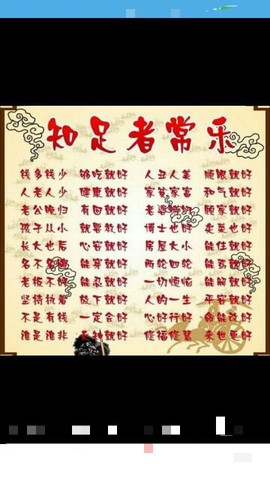 知足者常乐
钱多钱少 够吃就好 人丑人美 顺眼就好
人老人少 健康就好 家穷家富 和气就好
老公晚归 有回就好 老婆 顾家就好
孩子从小 就要教好 博士也好 卖菜也好
长大以后 心安就好 房屋大小 能住就好
名不名牌 能穿就好 两轮四轮 能驾就好
老板不好 能忍就好 一切烦恼 能解就好
坚持执着 放下就好 人的一生 平安就好
不是有钱 一定会好 心好行好 命能改好
谁是谁非 天知就好 修福修慧 来世更好